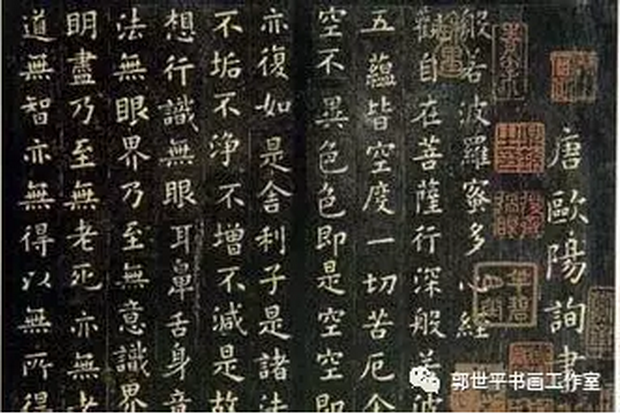 唐歐陽詢書
般若波羅蜜多心經
觀自在菩薩行深般若波
五蘊皆空度一切苦厄舍
空不異色色即是空空即
亦復如是舍利子是諸法
不垢不淨不增不減是故
想行識無眼耳鼻舌身意
法無眼界乃至無意識界
明盡乃至無老死亦無老
道無智亦無得以無所得
郭世平书画工作室